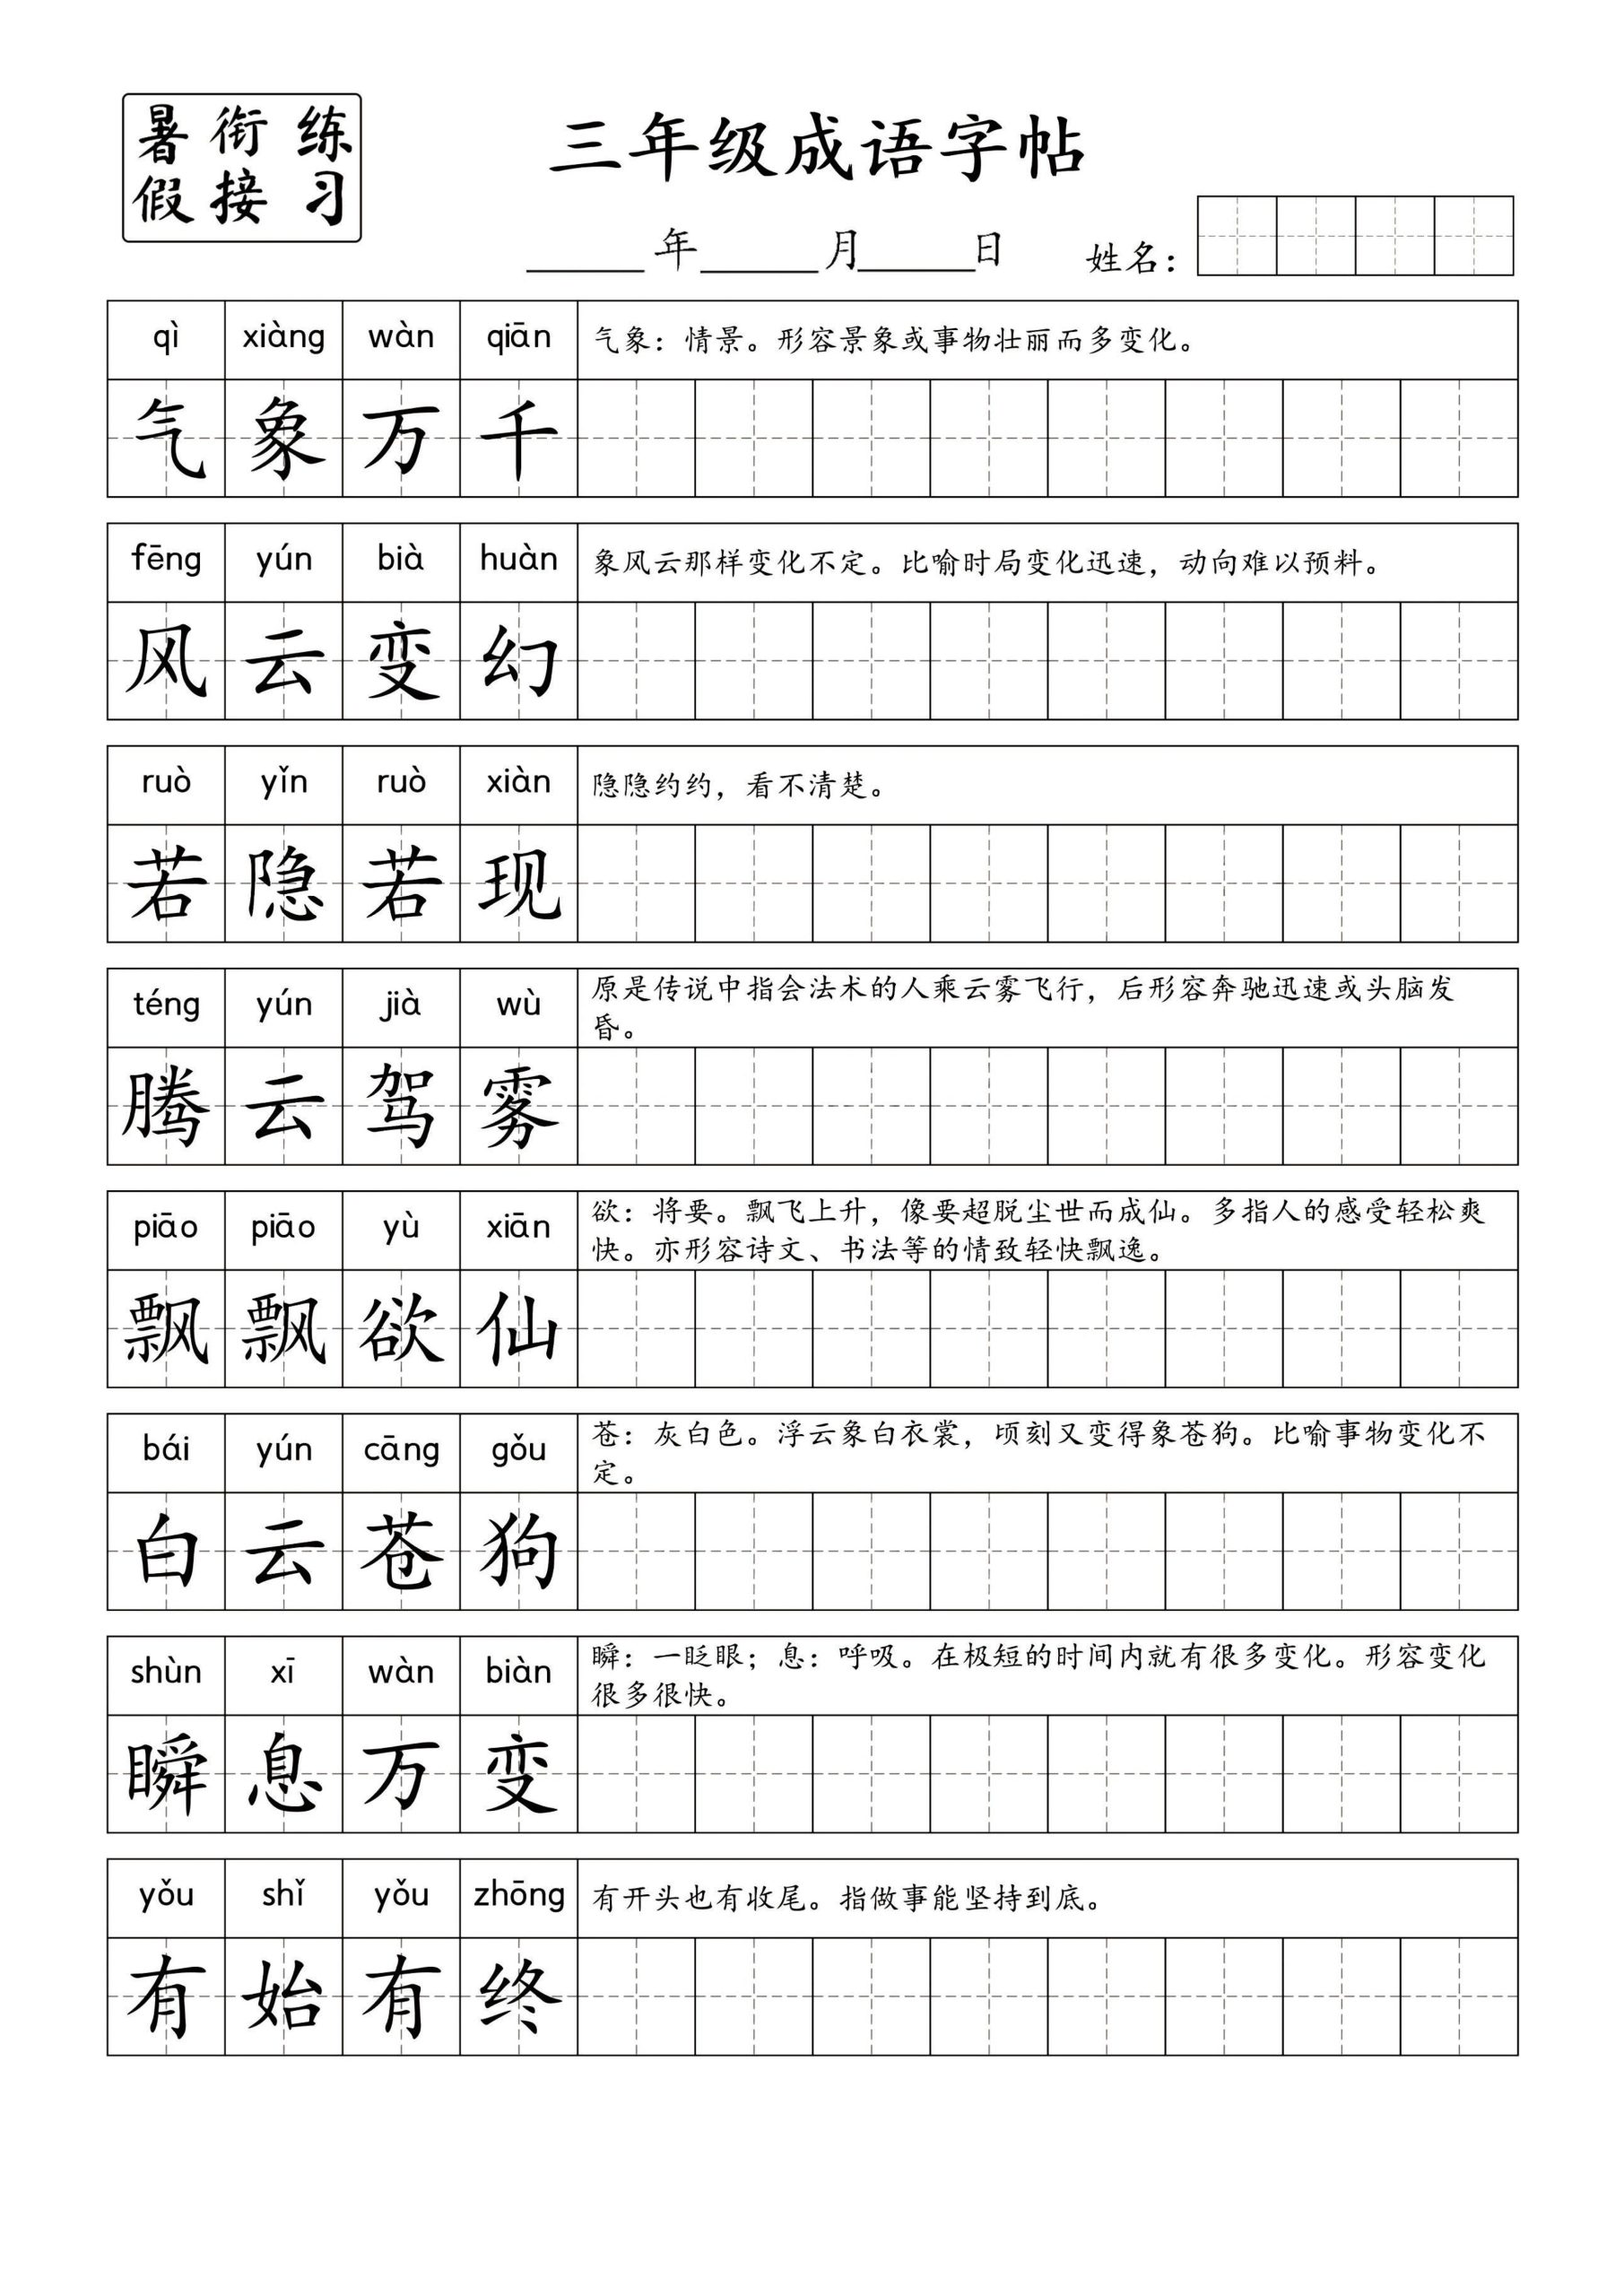 暑 衔 练
假 接 习
三年级成语字帖
年 月 日 姓名：
qì xiàng wàn qiān
气象：情景。形容景象或事物壮丽而多变化。
气 象 万 千
fēng yún bià huàn
象风云那样变化不定。比喻时局变化迅速，动向难以预料。
风 云 变 幻
ruò yǐn ruò xiàn
隐隐约约，看不清楚。
若 隐 若 现
téng yún jià wù
原是传说中指会法术的人乘云雾飞行，后形容奔驰迅速或头脑发
昏。
腾 云 驾 雾
piāo piāo yù xiān
欲：将要。飘飞上升，像要超脱尘世而成仙。多指人的感受轻松爽
快。亦形容诗文、书法等的情致轻快飘逸。
飘 飘 欲 仙
bái yún cāng gǒu
苍：灰白色。浮云象白衣裳，顷刻又变得象苍狗。比喻事物变化不
定。
白 云 苍 狗
shùn xī wàn biàn
瞬：一眨眼；息：呼吸。在极短的时间内就有很多变化。形容变化
很多很快。
瞬 息 万 变
yǒu shǐ yǒu zhōng
有开头也有收尾。指做事能坚持到底。
有 始 有 终